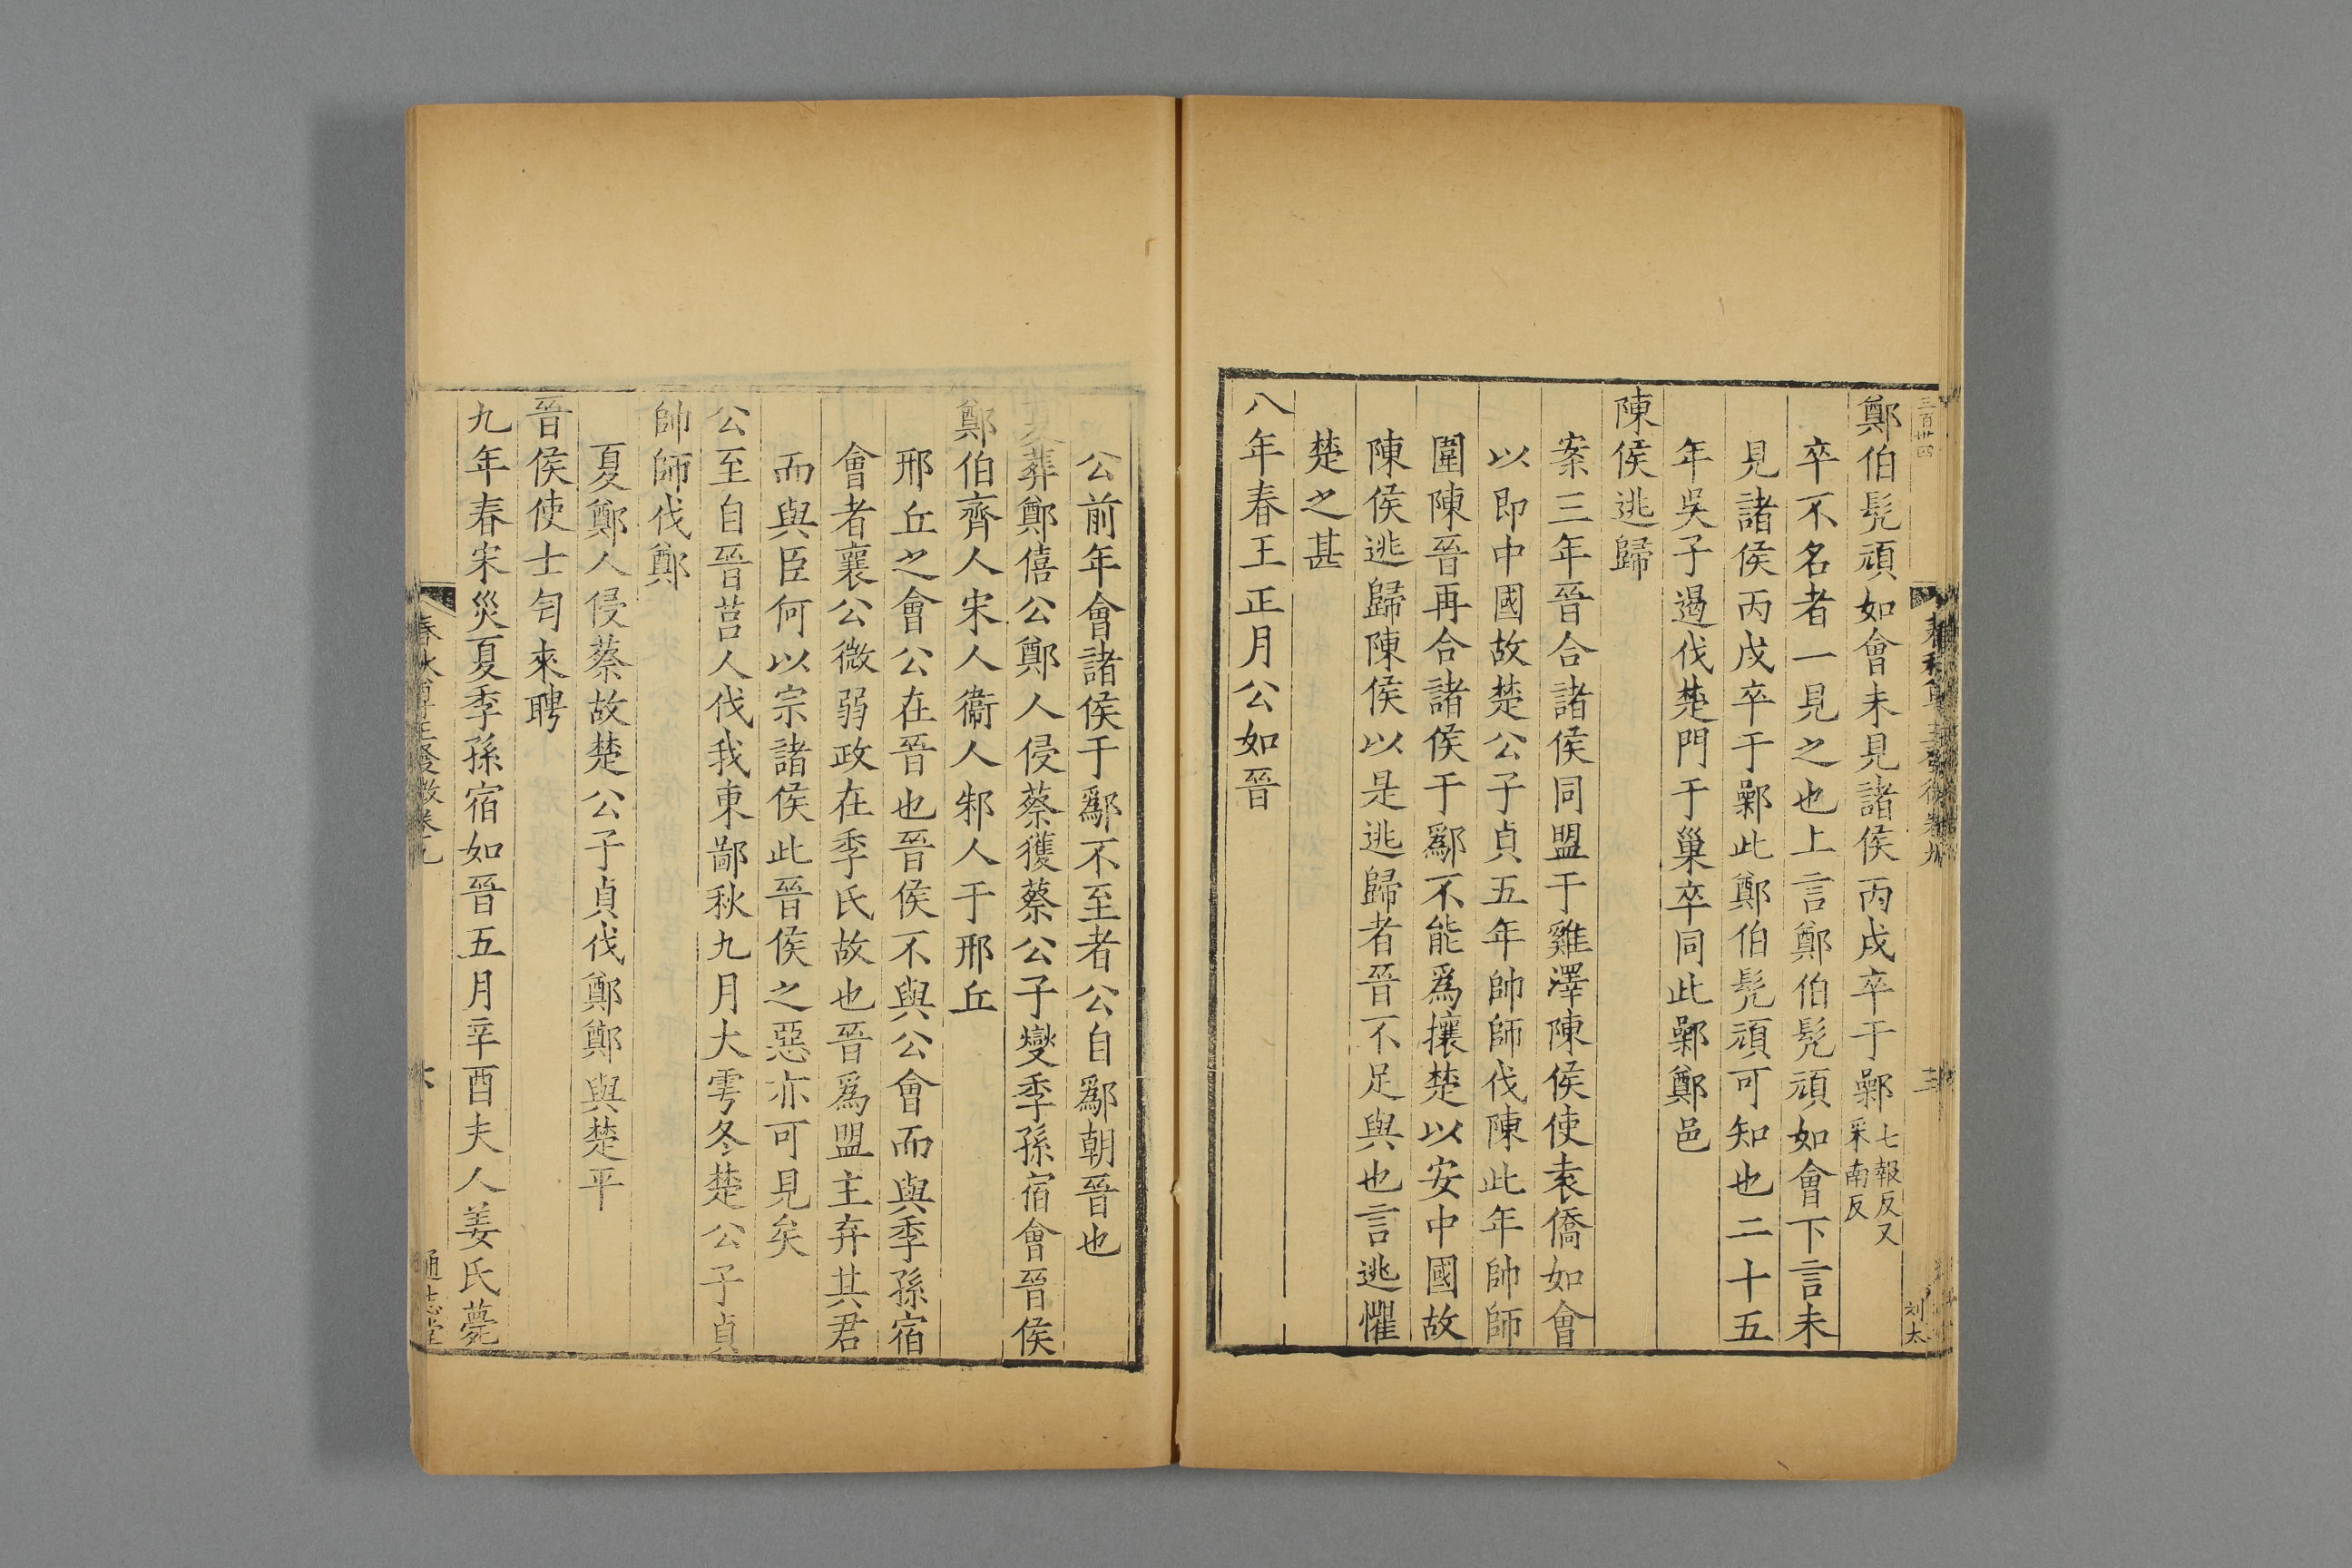 三百卅四
鄭伯髠頑如會未見諸侯丙戌卒于鄵七報反又采南反
卒不名者一見之也上言鄭伯髠頑如會下言未
見諸侯丙戌卒于鄵此鄭伯髠頑可知也二十五
年吳子遏伐楚門于巢卒同此鄵鄭邑
陳侯逃歸
案三年晉合諸侯同盟于雞澤陳侯使袁僑如會
以即中國故楚公子貞五年帥師伐陳此年帥師
圍陳晉再合諸侯于鄬不能爲攘楚以安中國故
陳侯逃歸陳侯以是逃歸者晉不足與也言逃懼
楚之甚
八年春王正月公如晉
刘太
公前年會諸侯于鄬不至者公自鄬朝晉也
夏葬鄭僖公鄭人侵蔡獲蔡公子燮季孫宿會晉侯
鄭伯齊人宋人衞人邾人于邢丘
邢丘之會公在晉也晉侯不與公會而與季孫宿
會者襄公微弱政在季氏故也晉爲盟主弃其君
而與臣何以宗諸侯此晉侯之惡亦可見矣
公至自晉莒人伐我東鄙秋九月大雩冬楚公子貞
帥師伐鄭
夏鄭人侵蔡故楚公子貞伐鄭鄭與楚平
晉侯使士匄來聘
九年春宋災夏季孫宿如晉五月辛酉夫人姜氏薨
通志堂